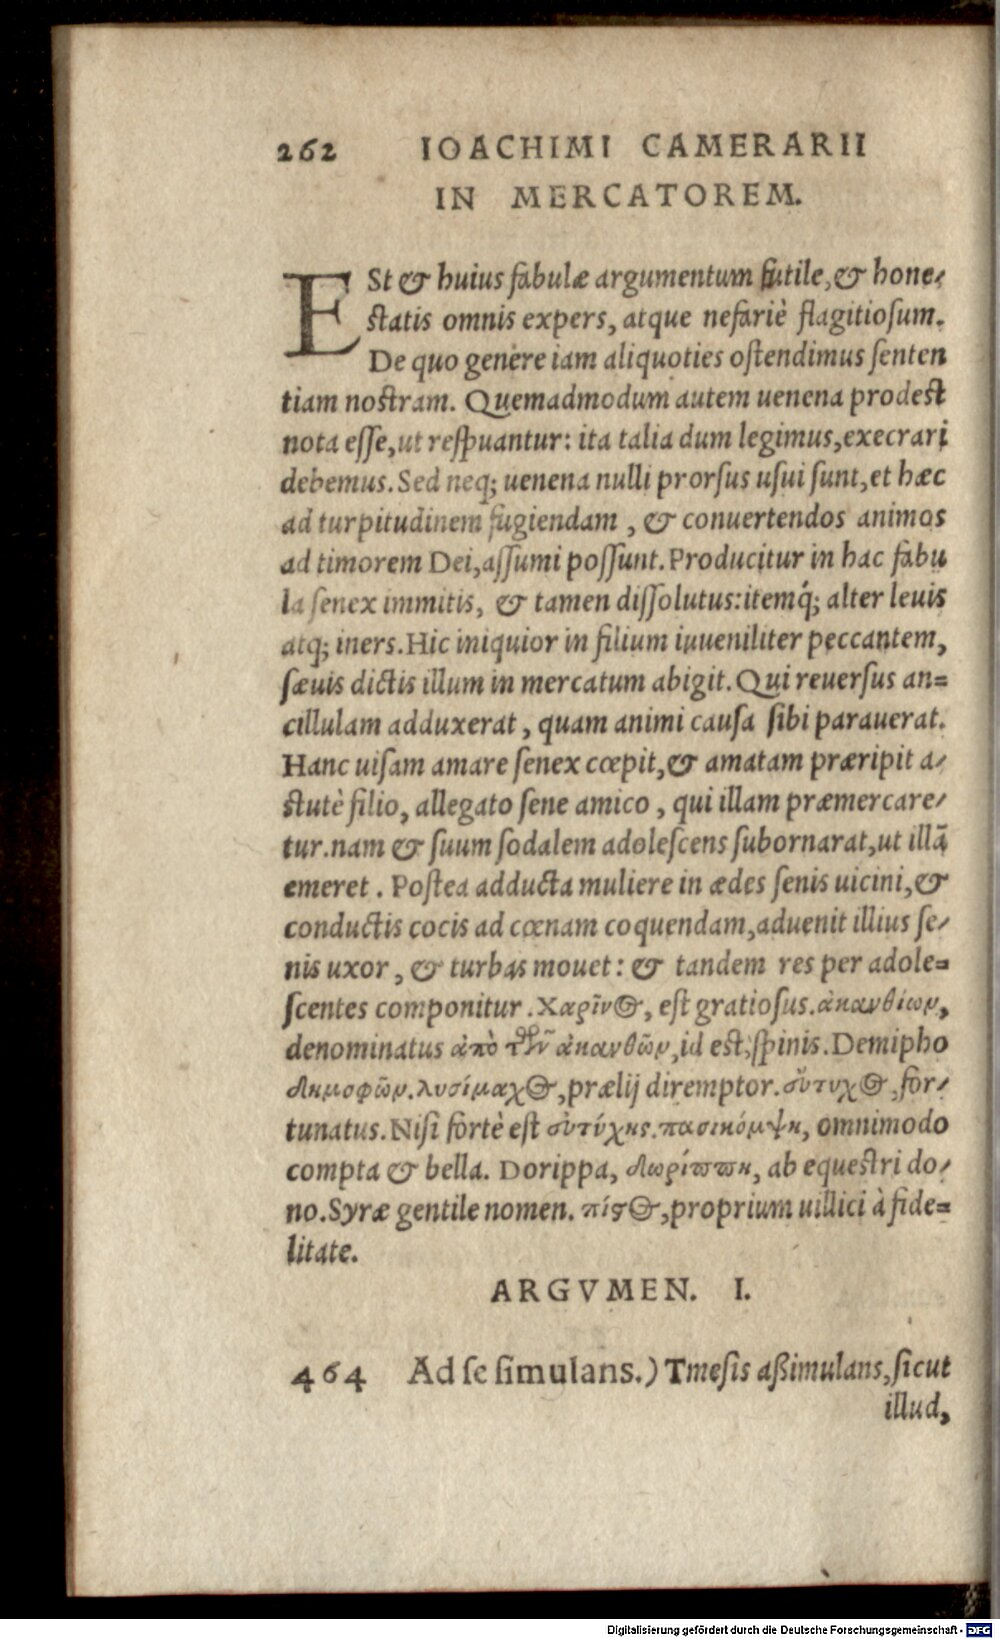 262 IOACHIMI CAMERARII
IN MERCATOREM.
ESt & huius fabulæ argumentum futile, & hone-
ſtatis omnis expers, atque nefariè flagitioſum.
De quo genere iam aliquoties oſtendimus ſenten
tiam noſtram. Quemadmodum autem uenena prodeſt
nota eſſe, ut reſpuantur: ita talia dum legimus, execrari
debemus. Sed neq; uenena nulli prorſus uſui ſunt, et hæc
ad turpitudinem fugiendam, & conuertendos animos
ad timorem Dei, aſſumi poſſunt. Producitur in hac fabu
la ſenex immitis, & tamen diſſolutus: itemq́; alter leuis
atq; iners. Hic iniquior in filium iuueniliter peccantem,
ſæuis dictis illum in mercatum abigit. Qui reuerſus an=
cillulam adduxerat, quam animi cauſa ſibi parauerat.
Hanc uiſam amare ſenex cœpit, & amatam præripit a-
ſtutè filio, allegato ſene amico, qui illam præmercare-
tur. nam & ſuum ſodalem adoleſcens ſubornarat, ut illā
emeret. Poſtea adducta muliere in ædes ſenis uicini, &
conductis cocis ad cœnam coquendam, aduenit illius ſe-
nis uxor, & turbas mouet: & tandem res per adole=
ſcentes componitur. Χαρῖνος, eſt gratioſus. ἀκανθίων,
denominatus ἀπὸ τῶν ἀκανθῶν, id eſt, ſpinis. Demipho
δημοφῶν. λυσίμαχος, prælij diremptor. εὔτυχος, for-
tunatus. Niſi fortè eſt εὐτύχης. πασικόμψη, omnimodo
compta & bella. Dorippa, δωρίππη, ab equeſtri do-
no. Syræ gentile nomen. πίστος, proprium uillici à fide=
litate.
ARGVMEN. I.
464 Ad ſe ſimulans.) Tmeſis aßimulans, ſicut
illud,
Digitalisierung gefördert durch die Deutsche Forschungsgemeinschaft - DFG